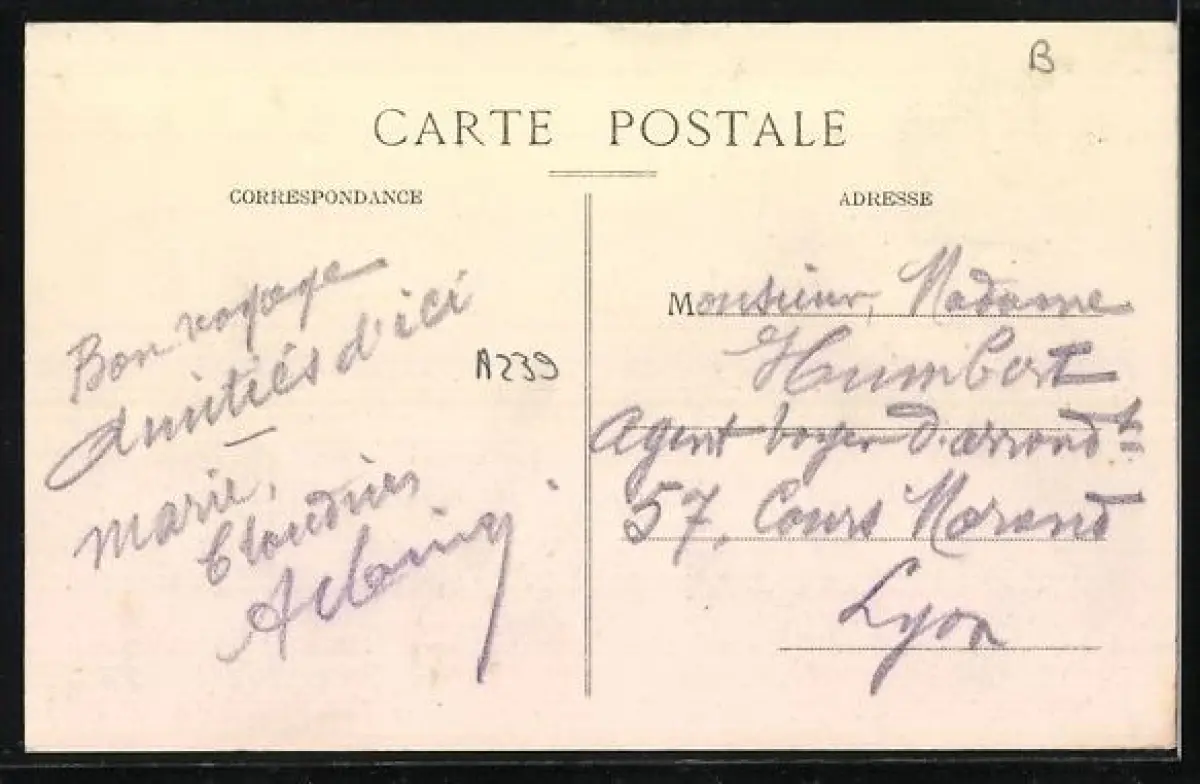 B
CARTE POSTALE
CORRESPONDANCE
Bon voyage
Amitiés d'ici
Marie,
Claudius
A239
ADRESSE
Monsieur, Madame
Humbert
Agent voyer d'arrondt
57, Cours Morand
Lyon